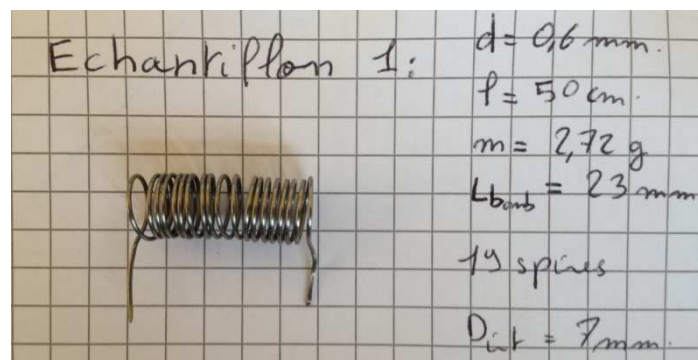 Echantillon 1:
d = 0,6 mm.
l = 50 cm.
m = 2,72 g
Lbomb = 23 mm
19 spires
Dint = 7mm.